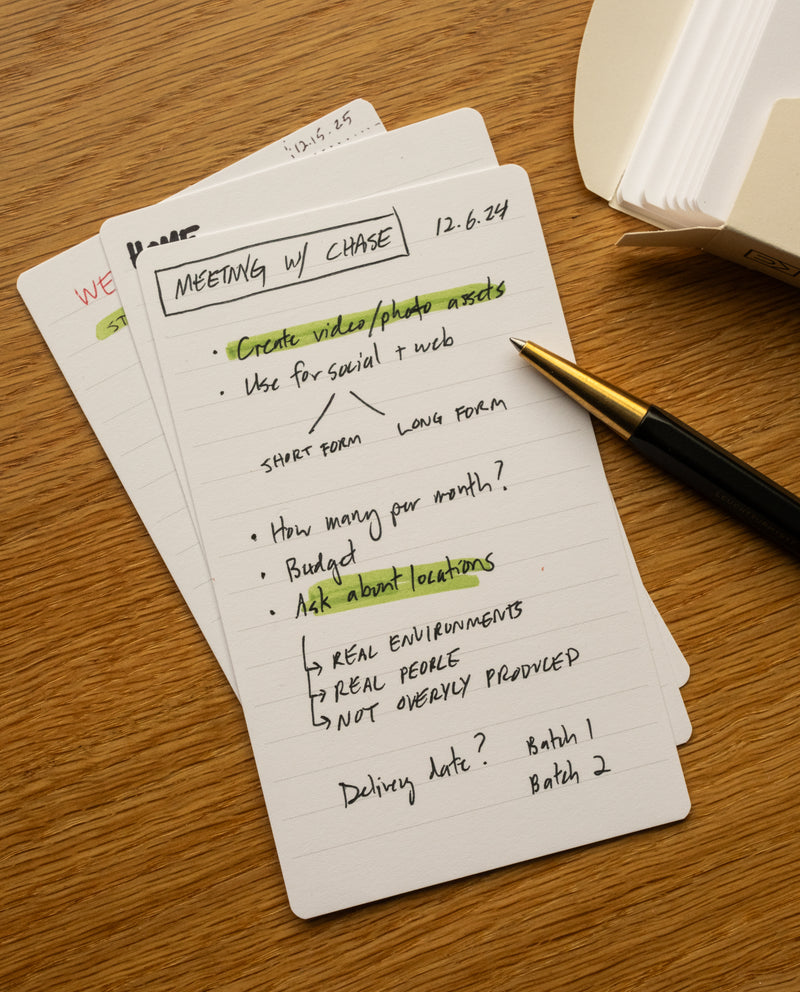 12.15.25
HOME
WE
ST
MEETING W/ CHASE
12.6.24
• Create video/photo assets
• Use for social + web
SHORT FORM
LONG FORM
• How many per month?
• Budget
• Ask about locations
REAL ENVIRONMENTS
REAL PEOPLE
NOT OVERYLY PRODUCED
Delivery date?
Batch 1
Batch 2